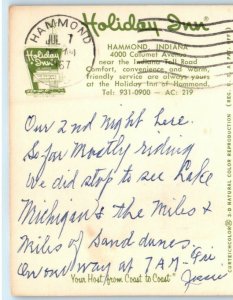 Holiday Inn®
HAMMOND, INDIANA
4000 Calumet Avenue
near the Indiana Toll Road
Comfort, convenience and warm,
friendly service are always yours
at the Holiday Inn of Hammond.
Tel: 931-0900 - AC: 219
HAMMOND
JUL 7
Holiday Inn
Our 2nd night here.
So far Mostly riding
We did stop to see Lake
Michigan & the Miles &
Miles of Sand dunes.
On our way at 7 AM-Fri
Jessie
Your Host from Coast to Coast
CURTEICHCOLOR® 3-D NATURAL COLOR REPRODUCTION